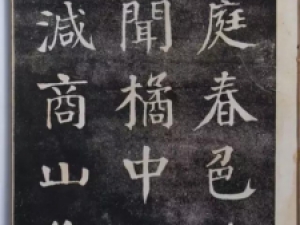 庭春色
聞橘中
減商山